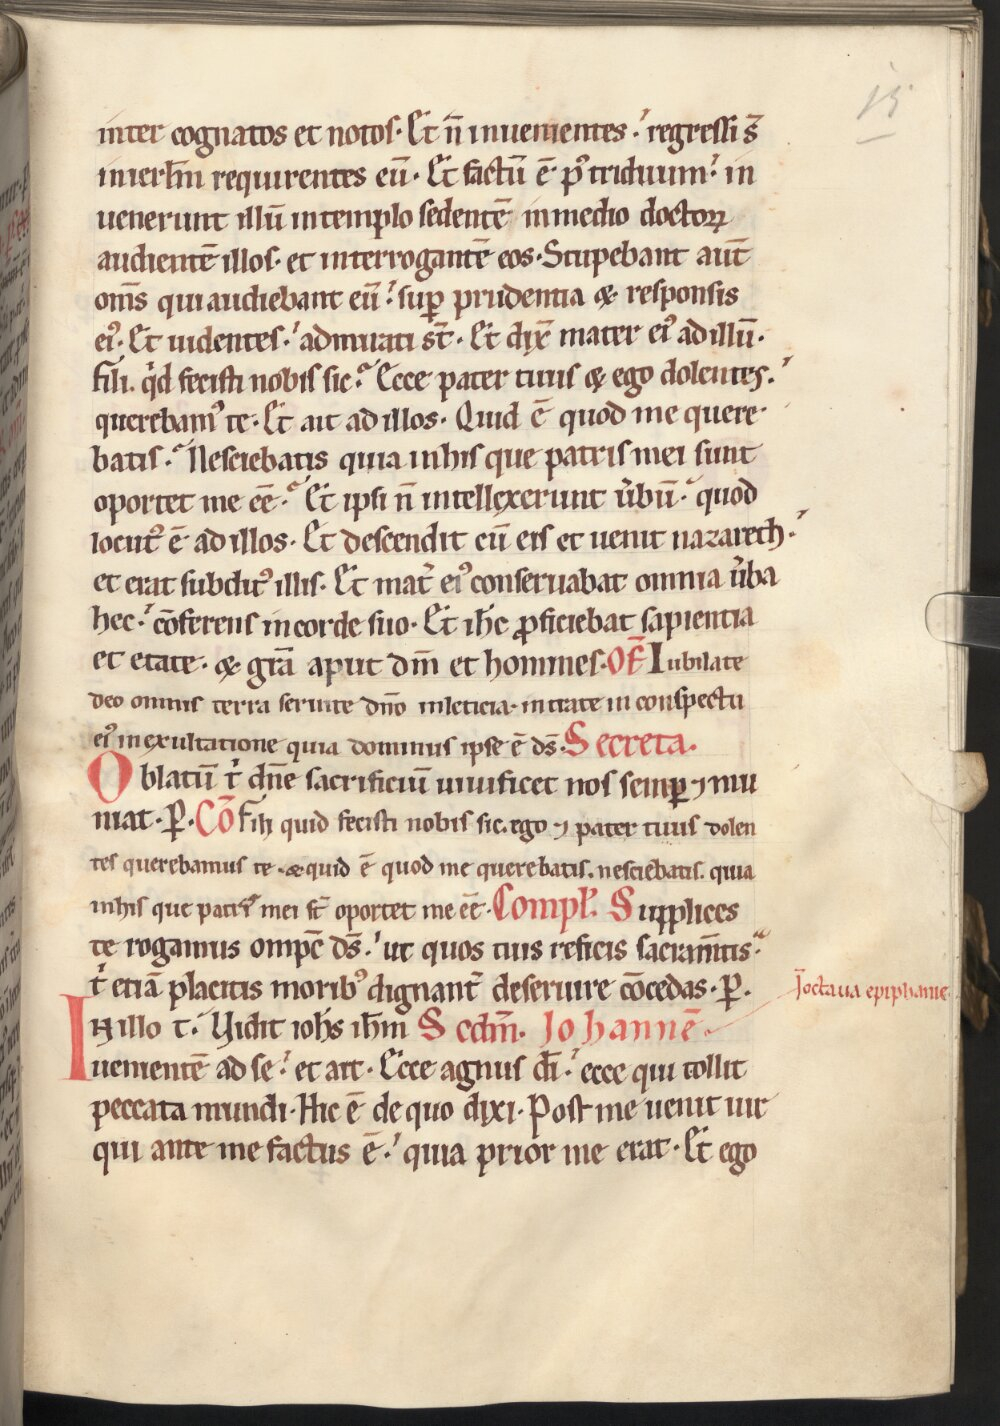 15
inter cognatos et notos· Et n̄ inuenientes· regressi s̄
inierl̄m requirentes eū· Et factū ē pꝰ triduum· in
uenerunt illū intemplo sedentē inmedio doctoꝝ
audientē illos· et interrogantē eos· Stupebant aut̄
om̄s qui audiebant eū· suꝑ prudentia & responsis
eiꝰ· Et uidentes· admirati st̄· Et dix̄ mater eiꝰ ad illū·
fili. qͥd fecisti nobis sic· Ecce pater tuus & ego dolentes·
querebamꝰ te· Et ait ad illos· Quid ē quod me quere·
batis· Nesciebatis quia inhis que patris mei sunt
oportet me eē· Et ipsi n̄ intellexerunt ūbū· quod
locutꝰ ē ad illos· Et descendit cū eis et uenit nazareth·
et erat subditꝰ illis· Et mat̄ eiꝰ conseruabat omnia ūba
hec· cōferens incorde suo· Et ih̄c ꝓficiebat sapientia
et etate· & gr̄a aput dm̄ et homines· Of̄ Iubilate
deo omnis terra seruite dn̄o inleticia· intrate in conspectu
eiꝰ inexultatione quia dominus ipse ē ds̄· Secreta.
Oblatū t̄ dn̄e sacrificiū uiuificet nos semꝑ ⁊ mu
niat· P̄· Cō Fili quid fecisti nobis sic. ego ⁊ pater tuus dolen
tes querebamus te· & quid ē quod me querebatis. nesciebatis. quia
inhis que patris mei st̄ oportet me eē· Compl̄. Supplices
te rogamus omp̄c ds̄· ut quos tuis reficis sacram̄tis·
t̄ etiā placitis moribꝰ dignant̄ deseruire cōcedas· P̄·
In illo t̄· Uidit ioh̄s ih̄m Scdm̄. Johannē
uenientē ad se· et ait· Ecce agnus dī· ecce qui tollit
peccata mundi· Hic ē de quo dixi· Post me uenit uir
qui ante me factus ē· quia prior me erat· Et ego
Joctaua epiphanie